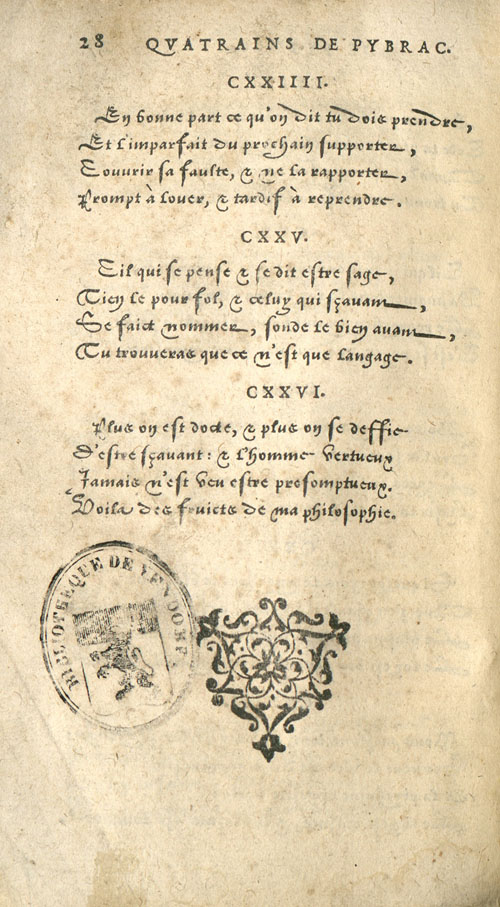 28 QVATRAINS DE PYBRAC.
CXXIIII.
En bonne part ce qu'on dit tu dois prendre,
Et l'imparfait du prochain supporter,
Couurir sa faulte, & ne la rapporter,
Prompt à louer, & tardif à reprendre.
CXXV.
Cil qui se pense & se dit estre sage,
Tien le pour fol, & celuy qui sçauant
Se faict nommer, sonde le bien auant,
Tu trouueras que ce n'est que langage.
CXXVI.
Plus on est docte, & plus on se deffie
D'estre sçauant: & l'homme vertueux
Jamais n'est veu estre presomptueux.
Voila des fruicts de ma philosophie.
BIBLIOTHEQUE DE VENDOME